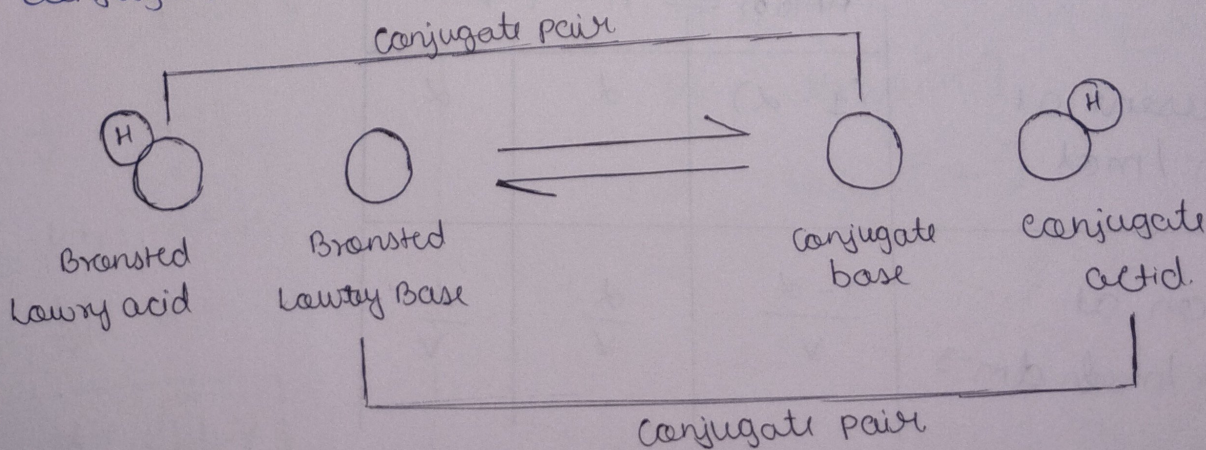 conjugate pair
H
H
Bronsted
Lowry acid
Bronsted
Lowry Base
conjugate
base
conjugate
actid.
conjugate pair